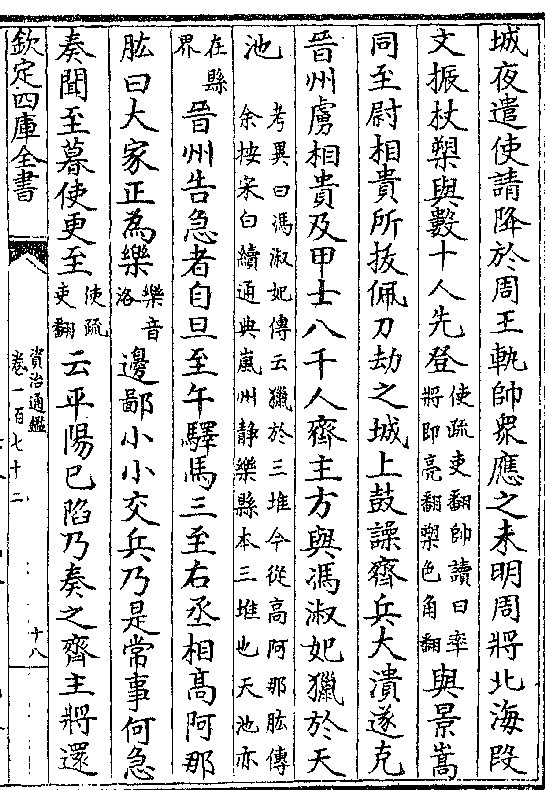 城夜遣使請降於周王軌帥衆應之未明周將北海段
文振杖槊與數十人先登使疏吏翻帥讀曰率將即亮翻槊色角翻與景嵩
同至尉相貴所拔佩刀劫之城上鼓譟齊兵大潰遂克
晉州虜相貴及甲士八千人齊主方與馮淑妃獵於天
池考異曰馮淑妃傳云獵於三堆今從高阿那肱傳余按宋白續通典嵐州静樂縣本三堆也天池亦
在縣界晉州告急者自旦至午驛馬三至右丞相高阿那
肱曰大家正為樂樂音洛邊鄙小小交兵乃是常事何急
奏聞至暮使更至使疏吏翻云平陽已陷乃奏之齊主將還
欽定四庫全書
資治通鑑
卷一百七十二
十八